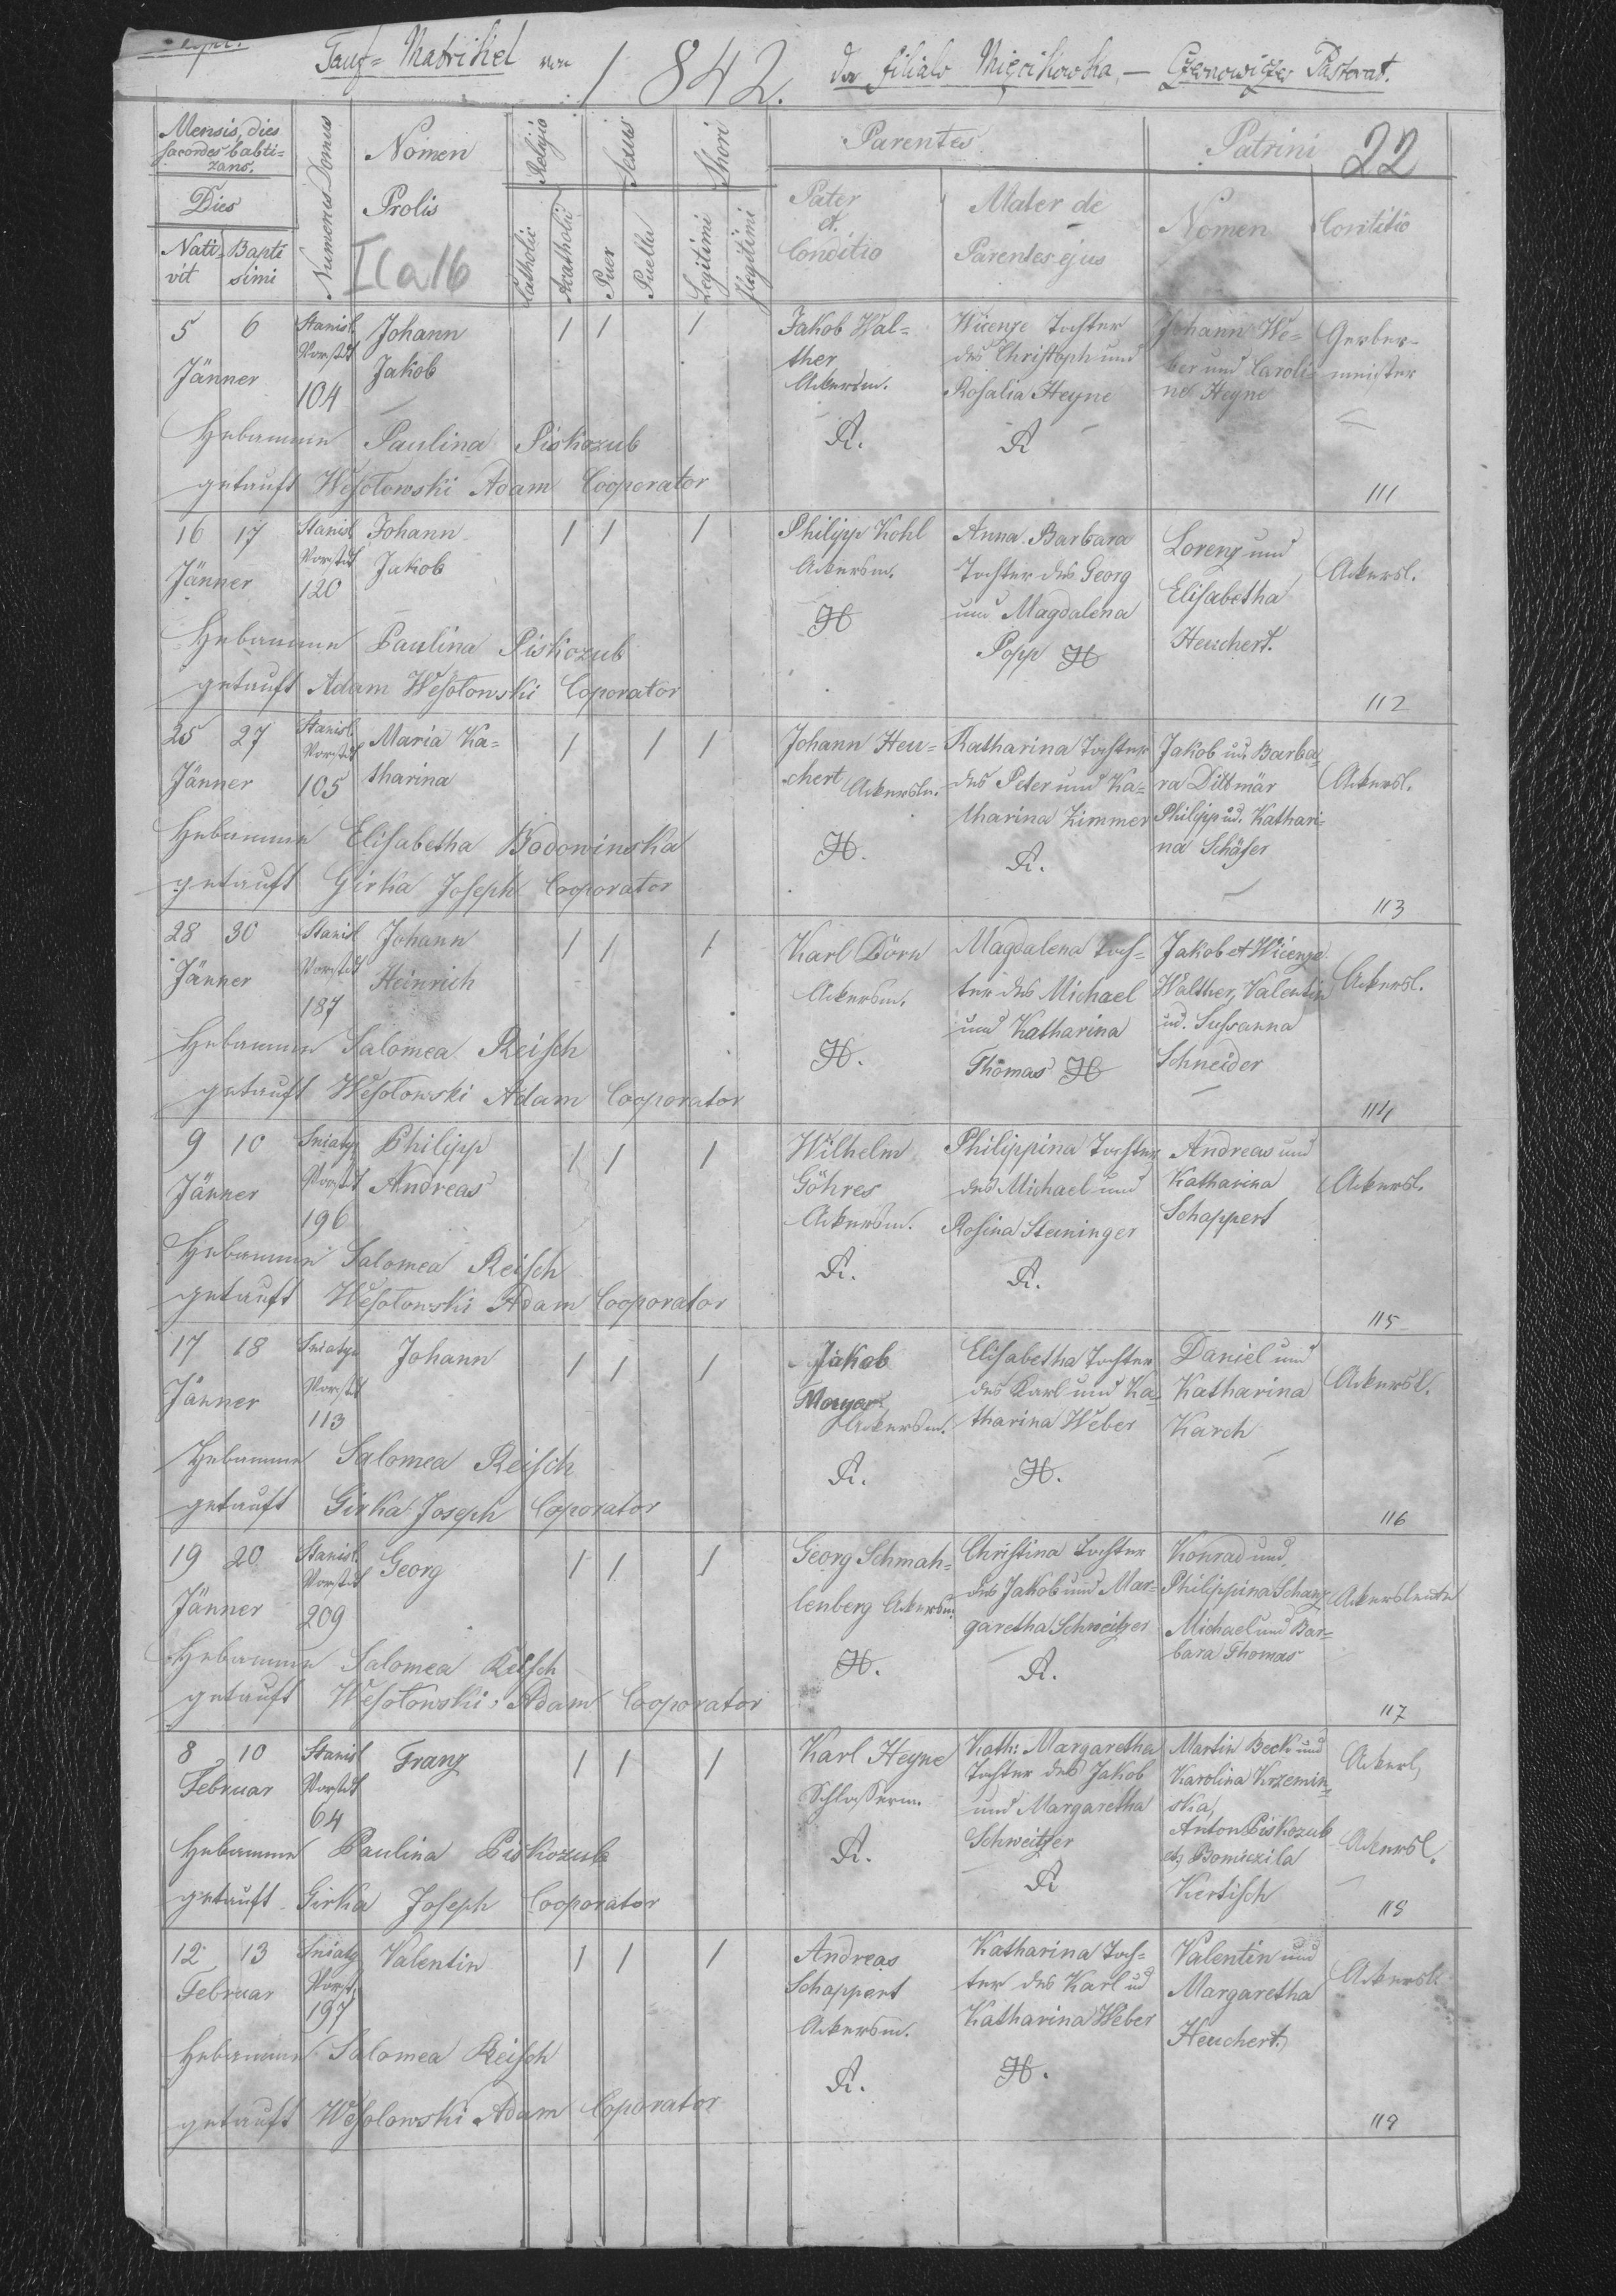 Tauf=Matrikel von 1842. der filiale Mięcikowka, — Czernowitzer Pastorat.
Mensis, dies sacerdos babti=zans.
Numerus Domus
Nomen
Religio
Sexus
Thori
Parentes.
Patrini
22
Dies
Prolis
Pater et. Conditio
Mater de Parentes ejus
Nomen
Contitio
Nati=vit
Bapti simi
ICa16
Catholic
Acatholic
Puer
Puella
Legitimi
Illegitimi
5 6 Stanisl. Johann 1 1 1 Jakob Wal= Wicenze Tochter Johann We= Gerber=
Vorstdt Jakob ther des Christoph und ber und Caroli= meister
Jänner 104 Ackersm. Rosalia Heyne ne Heyne
Hebamme Paulina Piskozub A. A
getauft Wesolowski Adam Cooporator 111
16 17 Stanisl Johann 1 1 1 Philipp Kohl Anna Barbara Lorenz und
Vorstdt Jakob Ackersm. Tochter des Georg Elisabetha Ackersl.
Jänner 120 H und Magdalena Heuchert.
Hebamme Paulina Piskozub Popp H
getauft Adam Wesolowski Coporator 112
25 27 Stanisl. Maria Ka= 1 1 1 Johann Heu= Katharina Tochter Jakob und Barba=
Vorstdt tharina chert Ackersm. des Peter und Ka= ra Dittmär Ackersl.
Jänner 105 tharina Zimmer Philipp ud. Kathari=
Hebamme Elisabetha Wadowinska H. A. na Schäfer
getauft Girka Joseph Cooporator 113
28 30 Stanisl Johann 1 1 1 Karl Dörn Magdalena Toch= Jakob et Wicenze
Jänner Vorstdt Heinrich Ackersm. ter des Michael Walther, Valentin Ackersl.
187 und Katharina ud. Sussanna
Hebamme Salomea Reisch H. Thomas H Schneider
getauft Wesolowski Adam Cooporator 114
9 10 Sniaty Philipp 1 1 1 Wilhelm Philippina Tochter Andreas und
Jänner Vorstdt Andreas Göhres des Michael und Katharina Ackersl.
196 Ackersm. Rosina Steininger Schappert
Hebamme Salomea Reisch A. A.
getauft Wesolowski Adam Cooporator 115
17 18 Sniatyn Johann 1 1 1 Jakob Elisabetha Tochter Daniel und
Jänner Vorstdt des Karl und Ka= Katharina Ackersl.
113 Ackersm. tharina Weber Karch
Hebamme Salomea Reisch A. H.
getauft Girka Joseph Coporator 116
19 20 Stanisl. Georg 1 1 1 Georg Schmah= Christina Tochter Konrad und
Vorstdt lenberg Ackersm. des Jakob und Mar= Philippina Schanz Ackersleute
Jänner 209 garetha Schweitzer Michael und Bar=
Hebamme Salomea Reisch H. A. bara Thomas
getauft Wesolowski Adam Cooporator 117
8 10 Stanisl Franz 1 1 1 Karl Heyne Kath: Margaretha Martin Beck und Ackerl,
Februar Vorstdt Schlosserm. Tochter des Jakob Karolina Krzemin=
64 und Margaretha ska,
Hebamme Paulina Piskozub A. Schweitzer Anton Piskozub Ackersl.
A et, Kertisch
getauft Girka Joseph Cooporator 118
12 13 Sniaty Valentin 1 1 1 Andreas Katharina Toch= Valentin und
Februar Vorst, Schappert ter des Karl ud Margaretha Ackersl.
197 Ackersm. Katharina Weber Heuchert.
Hebamme Salomea Reisch A. H.
getauft Wesolowski Adam Coporator 119